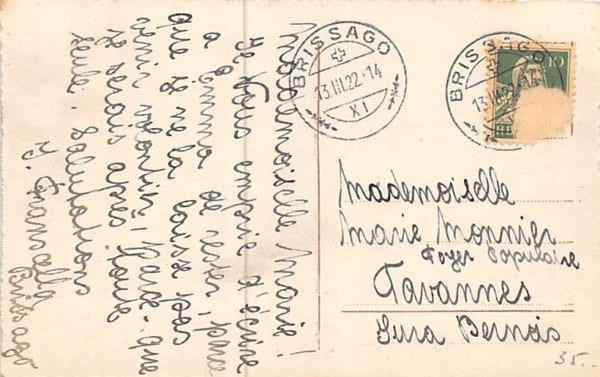 Mademoiselle Marie!
Je vous emprie d'écrire
a Emma de rester, parce
que je ne la laisse pas
venir volontir, parce-que
je serais après toute
seule. Salutations
J.
Brissago
BRISSAGO
13.III.22.-14
XI
BRISSAGO
13.III.22.-14
10
Mademoiselle
Marie Monnier
Foyer Populaire
Tavannes
Jura Bernois
35.-